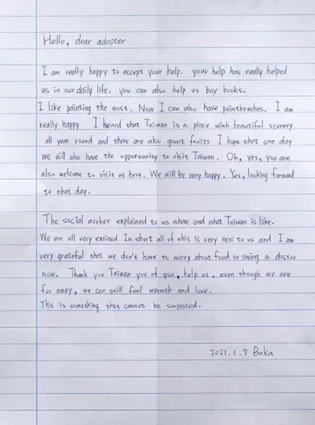 Hello, dear adopter
I am really happy to accept your help. your help has really helped
us in our daily life. you can also help us buy books.
I like painting the most. Now I can also have paintbrushes. I am
really happy I heard that Taiwan is a place with beautiful scenery
all year round and there are also giant fruits I hope that one day
we will also have the opportunity to visit Taiwan. Oh, yes, you are
also welcome to visit us here. We will be very happy. Yes, looking forward
to that day.
The social worker explained to us where and what Taiwan is like.
We are all very excited In short all of this is very new to us and I am
very grateful that we don't have to worry about food or seeing a doctor
now. Thank you Taiwan you of you, help us, even though we are
far away, we can still feel warmth and love.
This is something that cannot be surpassed.
2021.1.9 Buka